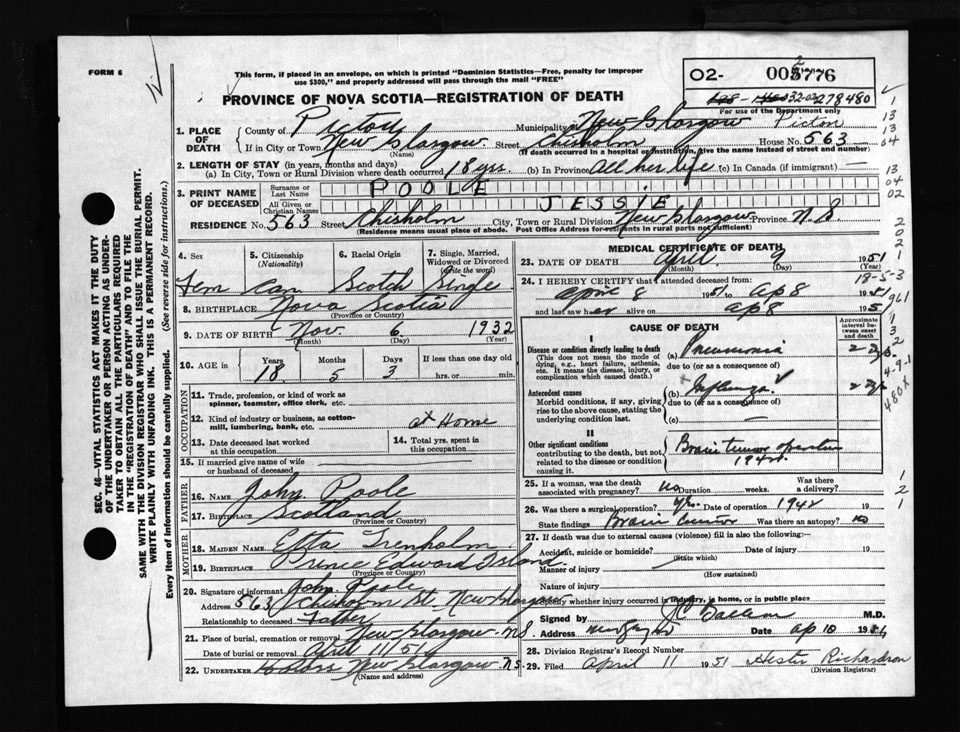 FORM 6
This form, if placed in an envelope, on which is printed "Dominion Statistics—Free, penalty for improper
use $300," and properly addressed will pass through the mail "FREE"
PROVINCE OF NOVA SCOTIA—REGISTRATION OF DEATH
02- 776
278480
For use of the Department only
1. PLACE OF DEATH
County of Pictou Municipality of New Glasgow Pictou
If in City or Town New Glasgow Street Chisholm House No. 563
(Name) (If death occurred in a hospital or institution, give the name instead of street and number)
2. LENGTH OF STAY (in years, months and days)
(a) In City, Town or Rural Division where death occurred 18 yrs. (b) In Province All her life (c) In Canada (if immigrant) —
3. PRINT NAME OF DECEASED
Surname or Last Name POOLE
All Given or Christian Names JESSIE
RESIDENCE No. 563 Street Chisholm City, Town or Rural Division New Glasgow Province N.S.
(Residence means usual place of abode. Post Office Address for residents in rural parts not sufficient)
SEC. 46—VITAL STATISTICS ACT MAKES IT THE DUTY
OF THE UNDERTAKER OR PERSON ACTING AS UNDER-
TAKER TO OBTAIN ALL THE PARTICULARS REQUIRED
IN THE "REGISTRATION OF DEATH" AND TO FILE THE
SAME WITH THE DIVISION REGISTRAR WHO SHALL ISSUE THE BURIAL PERMIT.
WRITE PLAINLY WITH UNFADING INK. THIS IS A PERMANENT RECORD.
Every item of information should be carefully supplied. (See reverse side for instructions.)
4. Sex Fem
5. Citizenship (Nationality) Can
6. Racial Origin Scotch
7. Single, Married, Widowed or Divorced (write the word) Single
8. BIRTHPLACE Nova Scotia
(Province or Country)
9. DATE OF BIRTH Nov. 6 1932
(Month) (Day) (Year)
10. AGE in Years 18 Months 5 Days 3 If less than one day old
hrs. or min.
OCCUPATION
11. Trade, profession, or kind of work as
spinner, teamster, office clerk, etc.
12. Kind of industry or business, as cotton-
mill, lumbering, bank, etc. at Home
13. Date deceased last worked
at this occupation
14. Total yrs. spent in
this occupation
15. If married give name of wife
or husband of deceased
FATHER
16. NAME John Poole
17. BIRTHPLACE Scotland
(Province or Country)
MOTHER
18. MAIDEN NAME Etta Trenholm
19. BIRTHPLACE Prince Edward Island.
(Province or Country)
20. Signature of informant John Poole
Address 563 Chisholm St. New Glasgow
Relationship to deceased Father
21. Place of burial, cremation or removal New Glasgow N.S.
Date of burial or removal April 11/51
22. UNDERTAKER New Glasgow N.S.
(Name and address)
MEDICAL CERTIFICATE OF DEATH
23. DATE OF DEATH April 9 1951
(Month) (Day) (Year)
24. I HEREBY CERTIFY that I attended deceased from:
April 8 1951 to ap 8 1951
and last saw her alive on ap 8 1951
CAUSE OF DEATH
Approximate
interval be-
tween onset
and death
I
Disease or condition directly leading to death
(This does not mean the mode of
dying, e.g., heart failure, asthenia,
etc. It means the disease, injury, or
complication which caused death.)
(a) Pneumonia
due to (or as a consequence of)
Antecedent causes
Morbid conditions, if any, giving
rise to the above cause, stating the
underlying condition last.
(b) Influenza
due to (or as a consequence of)
(c) —
II
Other significant conditions
contributing to the death, but not
related to the disease or condition
causing it.
Brain tumor operation
1942.
25. If a woman, was the death
associated with pregnancy? no Duration weeks. Was there
a delivery?
26. Was there a surgical operation? yes Date of operation 1942 19
State findings Brain tumor Was there an autopsy? no
27. If death was due to external causes (violence) fill in also the following:—
Accident, suicide or homicide? Date of injury 19
(State which)
Manner of injury
(How sustained)
Nature of injury
Specify whether injury occurred in industry, in home, or in public place
Signed by M.D.
Address Date ap 10 1951
28. Division Registrar's Record Number
29. Filed April 11 1951 Hester Richardson
(Division Registrar)
18-5-3
4-9-1
480x